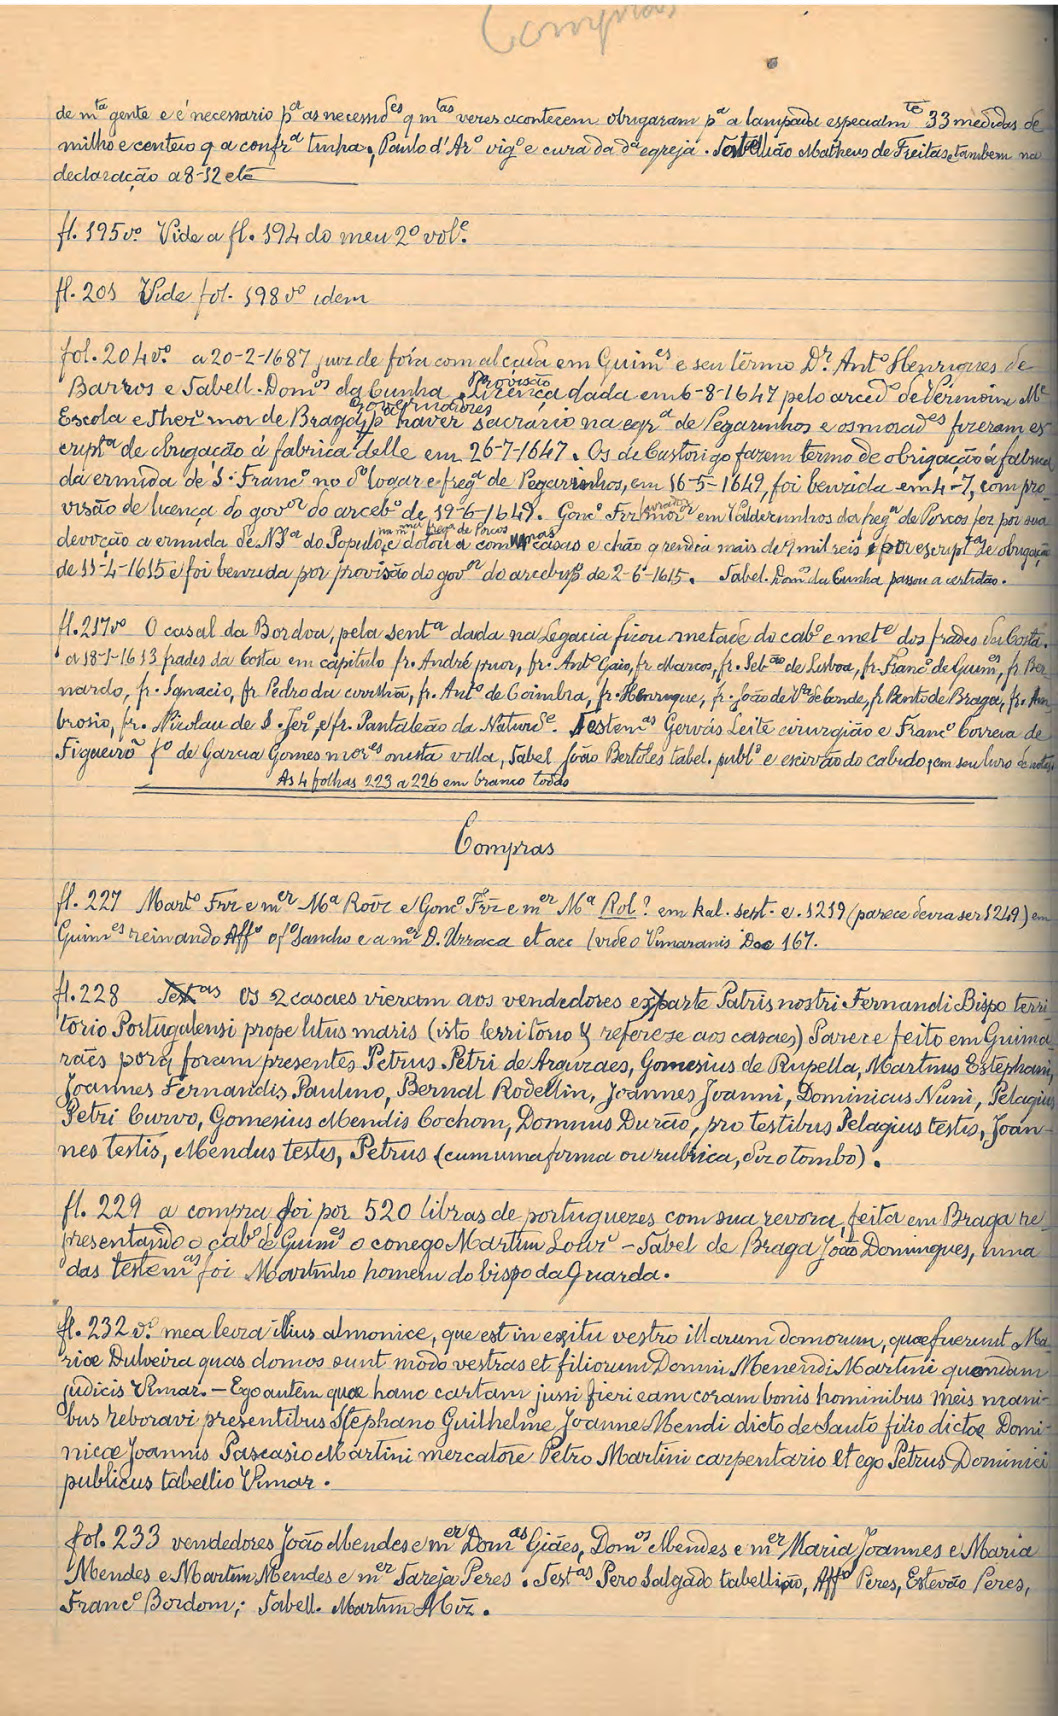 Compras
de mta gente e é necessario pa as necessides q mtas vezes acontecem obrigaram pa a lampada especialmte 33 medidas de
milho e centeio q a confra tinha, Paulo d'Aro vigo e cura da da egreja. Tabellião Matheus de Freitas, tambem na
declaração a 8-12 etc
fl. 195vo. Vide a fl. 194 do meu 2o vole.
fl. 201 Vide fol. 198vo idem
fol. 204vo. a 20-2-1687 juiz de fóra com alçada em Guimes e seu têrmo Dr. Anto Henriques de
Barros e Tabell. Domos da Cunha. Provisão Licença dada em 6-8-1647 pelo arcedo de Vermoim Me
Escola e Thero mor de Braga, governadores pa haver sacrario na egra de Pegarinhos e os morades fizeram es-
cripta de obrigação á fabrica delle em 26-7-1647. Os de Castorigo fazem termo de obrigação á fabrica
da ermida de S. Franco no do logar e frega de Pegarinhos, em 16-5-1649, foi benzida em 4-7, com pro-
visão de licença do govor do arcebo de 19-6-1649. Gonço Frz lavrador mor em Valderunhos da frega de Porcos fez por sua
devoção a ermida de N. Sra do Populo, na mma frega de Porcos e dotou a com umas casas e chão q rendia mais de 1 mil reis e por escripta de obrigação
de 11-4-1615 e foi benzida por provisão do govor do arcebispo de 2-6-1615. Tabel. Domos da Cunha passou a certidão.
fl. 217vo O casal da Bordoa, pela senta dada na Legacia ficou metade do cabo e mete dos frades da Costa.
a 18-1-1613 frades da Costa em capitulo fr. André prior, fr. Anto Gaio, fr. Marcos, fr. Sebão de Lisboa, fr. Franco de Guimes, fr. Ber-
nardo, fr. Ignacio, fr. Pedro da covilhã, fr. Anto de Coimbra, fr. Henrique, fr. João de Va de Conde, fr. Bento de Braga, fr. Am-
brosio, fr. Nicolau de S. Jero, e fr. Pantaleão da Nativde. Testemas Gervás Leite cirurgião e Franco Correia de
Figueirô fo de Garcia Gomes mores nesta villa, Tabel João Bertoles tabel. publo e escrivão do cabido, em seu livro de notas
As 4 folhas 223 a 226 em branco todas
Compras
fl. 227 Marto Frz e mer Ma Roiz e Gonço Frz e mer Ma Rol? em kal. sept. e. 1219 (parece devia ser 1249) em
Guimes reinando Affo of Sancho e a mer D. Urraca et acc (vide o Vimaranis Doc 167.
fl. 228 Os 2 casaes vieram aos vendedores ex parte Patris nostri Fernandi Bispo terri-
torio Portugalensi prope litus maris (isto territorio & refere-se aos casaes) Parece feito em Guima-
rães porq foram presentes Petrus Petri de Araujaes, Gomesius de Rupella, Martinus Estephani,
Joannes Fernandis Paulino, Bernal Rodellin, Joannes Joanni, Dominicus Nuni, Pelagius
Petri Curvo, Gomesius Mendis Cochom, Domnus Durão, pro testibus Pelagius testis, Joan-
nes testis, Mendus testis, Petrus (cum uma forma ou rubrica, diz o tombo).
fl. 229 a compra foi por 520 libras de portuguezes com sua revora, feita em Braga re-
presentando o cabo de Guimes o conego Martim Lourо - Tabel de Braga João Domingues, uma
das testemas foi Martinho homem do bispo da Guarda.
fl. 232vo. mea leira illius almonice, que est in exitu vestro illarum domorum, quæ fuerunt Ma-
riæ Dulveira quas domos sunt modo vestras et filiorum Domni Menendi Martini quondam
judicis Vimar. - Ego autem quæ hanc cartam jussi fieri eam coram bonis hominibus meis mani-
bus roboravi presentibus Stephano Guilhelme Joanne Mendi dicto de Sauto filio dictæ Domi-
nicæ Joannis Pascasio Martini mercatore Petro Martini carpentario et ego Petrus Dominici
publicus tabellio Vimar.
fol. 233 vendedores João Mendes e mer Domas Giães, Domos Mendes e mer Maria Joannes e Maria
Mendes e Martim Mendes e mer Tareja Peres. Testas Pero Salgado tabellião, Affo Peres, Estevão Peres,
Franco Bordom; Tabell. Martim Miz.